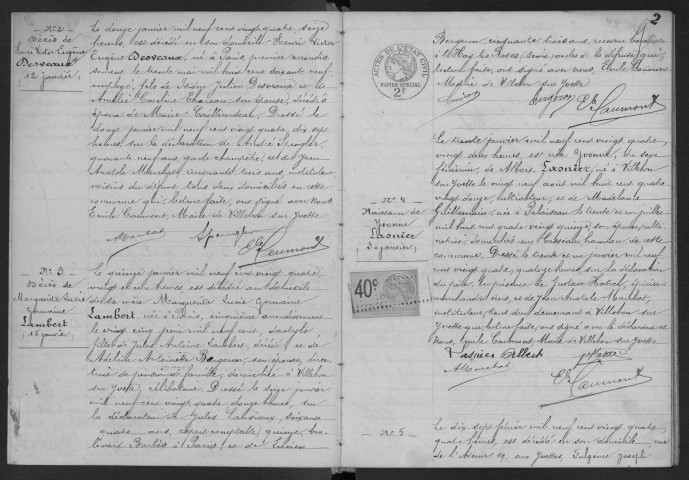 N° 2
Décès de
Henri Victor Eugène
Desveaux
12 janvier
Le douze janvier mil neuf cent vingt quatre, seize
heures, est décédé en son domicile Henri Victor
Eugène Desveaux, né à Paris premier arrondis
sement le trente mai mil huit cent soixante neuf,
employé, fils de Isidore Julien Desveaux et de
Amélie Caroline son épouse, décédés
époux de Marie Dressé le
douze janvier mil neuf cent vingt quatre dix sept
heures, sur la déclaration de André Spengler,
quarante neuf ans, garde champêtre, et de Jean
Anatole Marchat, cinquante trois ans, instituteur
voisins du défunt tous deux domiciliés en cette
commune qui, lecture faite, ont signé avec Nous,
Emile Caumont, Maire de Villebon sur Yvette
Marchat Spengler
Ele Caumont
N° 3
Décès de
Marguerite Lucie
Germaine
Lambert
15 janvier
Le quinze janvier mil neuf cent vingt quatre,
vingt et une heures est décédée au domicile
de sa mère Marguerite Lucie Germaine
Lambert, née à Paris, cinquième arrondissement
le vingt cinq juin mil neuf cent, dactylo
fille de Jules Antoine Lambert, décédé et de
Adeline Antoinette Bergeron, son épouse, direc
trice de pension de famille, domiciliée à Villebon
sur Yvette, célibataire. Dressé le seize janvier
mil neuf cent vingt quatre douze heures, sur
la déclaration de Jules soixante
quatre ans, expert comptable, quinze, bou
levard Barbès à Paris, et de Lucien
2
Bergeron, cinquante trois ans,
l'Hay les Roses (Seine) de la défunte qui,
lecture faite, ont signé avec nous, Emile Caumont
Maire de Villebon sur Yvette
Bergeron Ele Caumont
ACTES DE L'ETAT CIVIL
PAPIER SPECIAL
2F
N° 4
Naissance de
Yvonne
Lasnier
30 janvier
40c
Le trente janvier mil neuf cent vingt quatre,
vingt deux heures, est née Yvonne, du sexe
féminin, de Albert Lasnier, né à Villebon
sur Yvette le vingt août mil huit cent quatre
vingt douze, cultivateur, et de Madeleine
Guillemain, née à Palaiseau le trente et un juillet
mil huit cent quatre vingt quinze, son épouse, culti
vatrice, domiciliés au hameau de cette
commune. Dressé le trente et un janvier mil neuf
cent vingt quatre, quatorze heures, sur la déclaration
du père. En présence de Gustave épicier
marchand de vins, et de Jean Anatole Marchat,
instituteur, tous deux demeurant à Villebon sur
Yvette qui lecture faite, ont signé avec le déclarant et
Nous, Emile Caumont, Maire de Villebon sur Yvette
Lasnier Albert
Marchat
Ele Caumont
N° 5
Le dix sept février mil neuf cent vingt quatre,
quatre heures, est décédé en son domicile, rue
de l'Avenir 19, aux Joseph